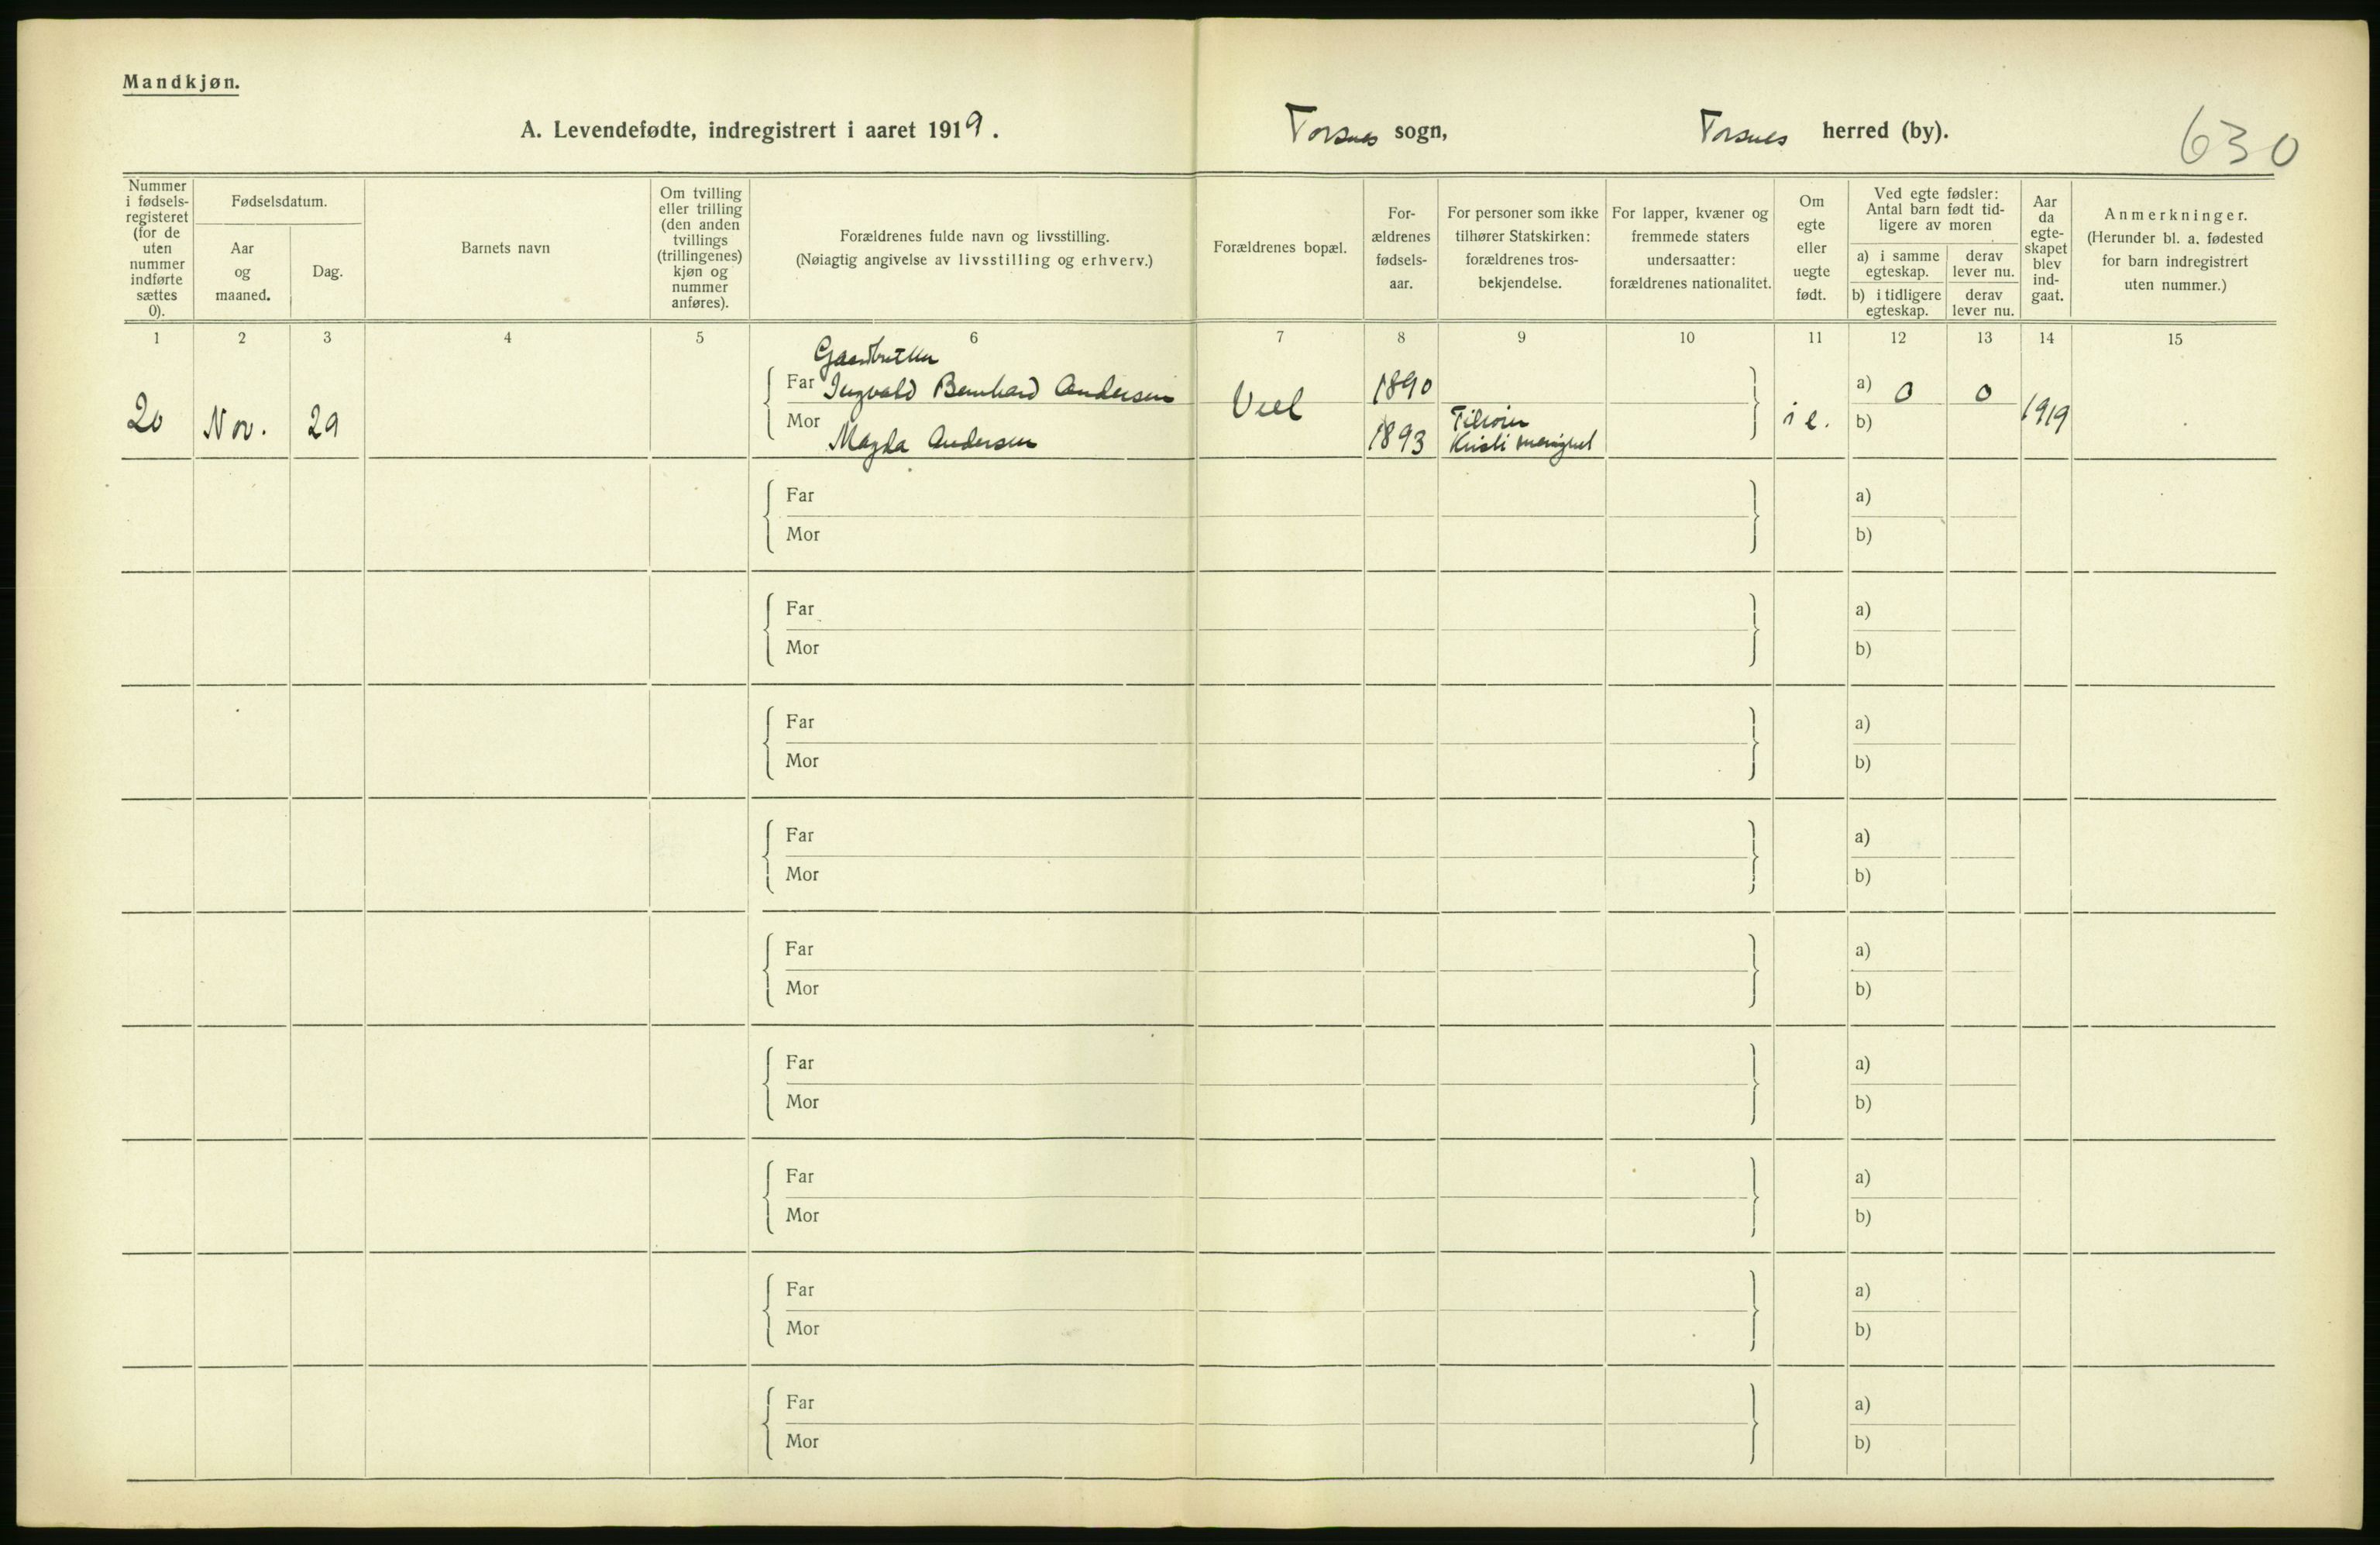 Mandkjøn.
A. Levendefødte, indregistrert i aaret 1919. Torsnes sogn, Torsnes herred (by). 630
Nummer i fødsels-registeret (for de uten nummer indførte sættes 0).
Fødselsdatum.
Aar og maaned.
Dag.
Barnets navn
Om tvilling eller trilling (den anden tvillings (trillingenes) kjøn og nummer anføres).
Forældrenes fulde navn og livsstilling.
(Nøiagtig angivelse av livsstilling og erhverv.)
Forældrenes bopæl.
For-ældrenes fødsels-aar.
For personer som ikke tilhører Statskirken: forældrenes tros-bekjendelse.
For lapper, kvæner og fremmede staters undersaatter: forældrenes nationalitet.
Om egte eller uegte født.
Ved egte fødsler: Antal barn født tid-ligere av moren
a) i samme egteskap.
derav lever nu.
b) i tidligere egteskap.
derav lever nu.
Aar da egte-skapet blev ind-gaat.
Anmerkninger.
(Herunder bl. a. fødested for barn indregistrert uten nummer.)
1 2 3 4 5 6 7 8 9 10 11 12 13 14 15
Far Ingvald Bernhard Andersen 1890 a) 0 0
20 Nov. 29 i e. 1919
Mor Magda Andersen 1893 b)
Far a)
Mor b)
Far a)
Mor b)
Far a)
Mor b)
Far a)
Mor b)
Far a)
Mor b)
Far a)
Mor b)
Far a)
Mor b)
Far a)
Mor b)
Far a)
Mor b)